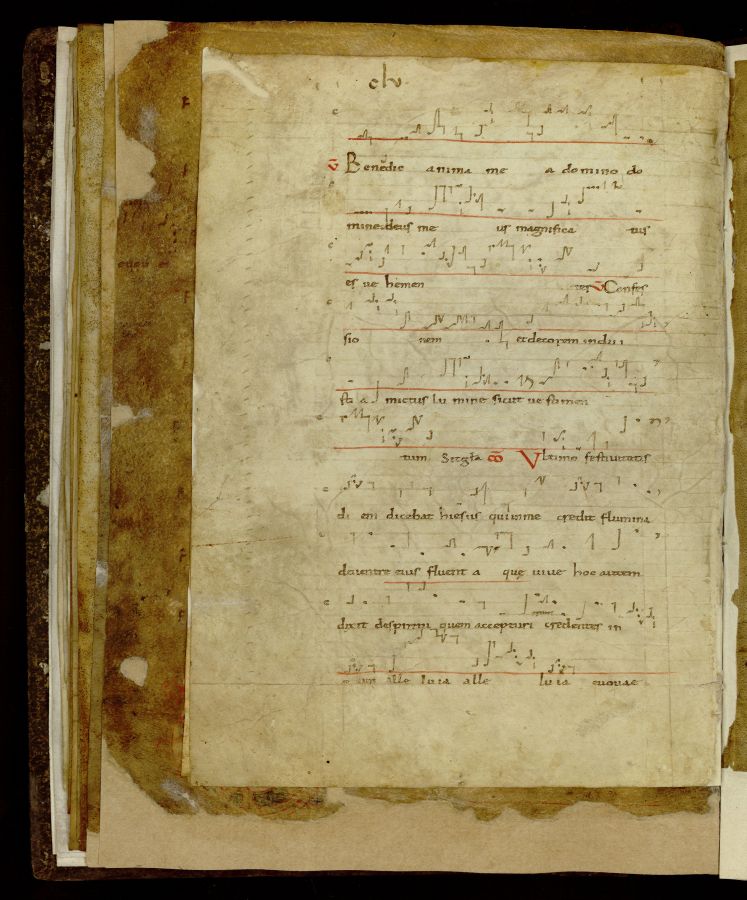 clv
Benedic anima me a domino do
mine deus me us magnifica tus
es ve hemen ter Confes
sio nem et decorem indui
sti a mictus lu mine sicut ve stimen
tum Set gla Ultimo festivitatis
di em dicebat hiesus qui in me credit flumina
de ventre eius fluent a que vive hoc autem
dixit despiritu quem accepturi credentes in
e um alle lu ia alle lu ia euouae